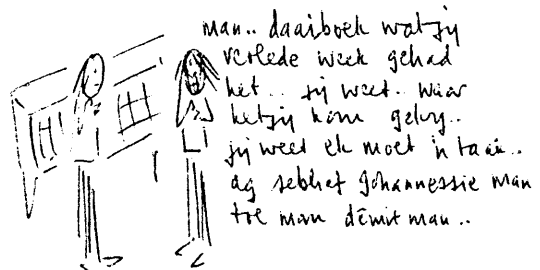 man.. daaiboek wat jy
verlede week gehad
het.. jy weet.. waar
het jy hom gekry..
jy weet ek moet 'n taak..
ag seblief Johannessie man
toe man dêmit man..